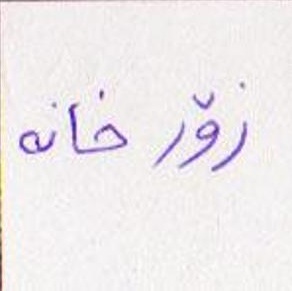 زۆر خانه